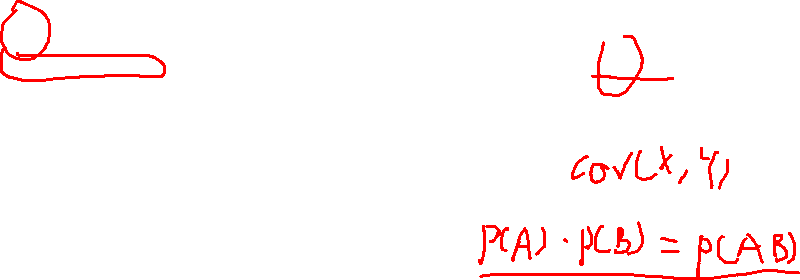 θ
cov(x, y)
P(A) · P(B) = P(AB)